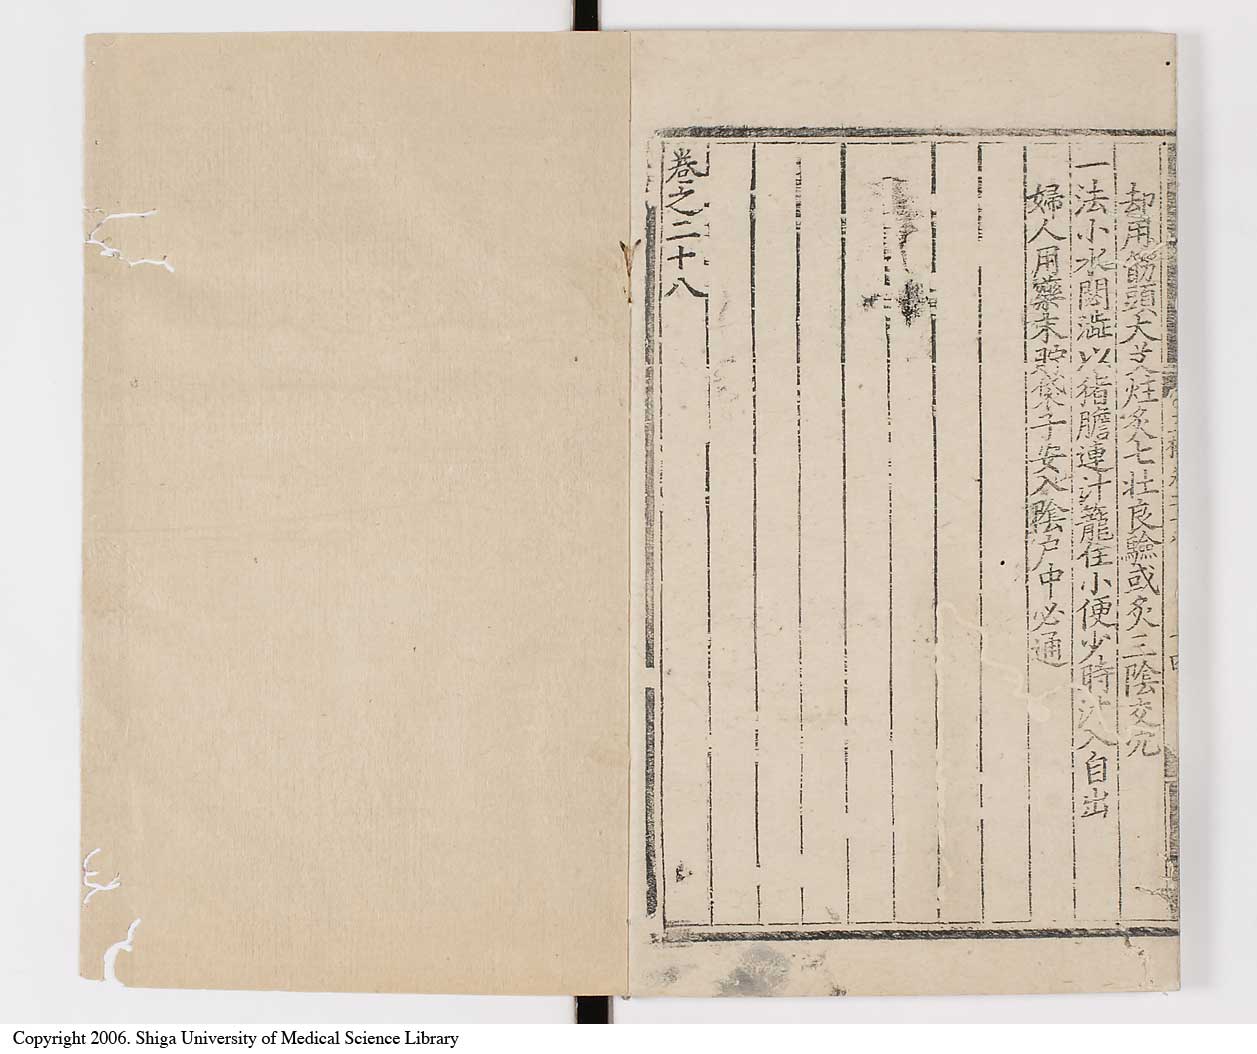 却用筋頭大艾炷灸七壯良驗或灸三陰交穴
一法小水閉澁以猪膽連汁籠住小便少時汁入自出
婦人用藥末貯袋子安入陰户中必通
卷之二十八
Copyright 2006. Shiga University of Medical Science Library